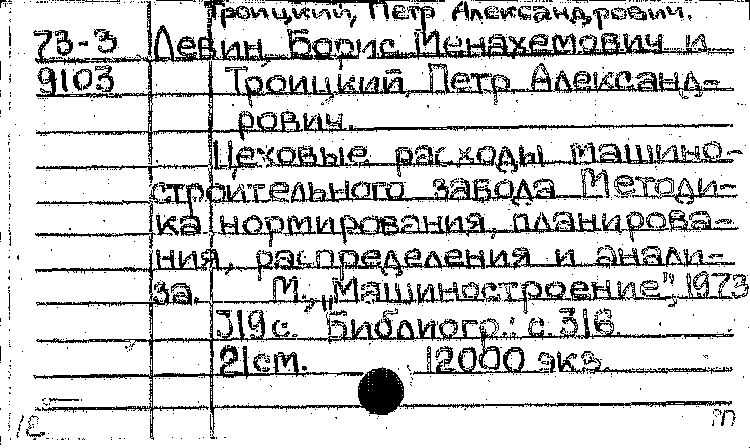 Троицкий, Петр Александрович.
73-3 Левин, Борис Менахемович и
9103 Троицкий, Петр Александ-
рович.
Цеховые расходы машино-
строительного завода Методи-
ка нормирования, планирова-
ния, распределения и анали-
за. М., „Машиностроение", 1973
319 с. Библиогр.: с. 316.
21 см. 12000 экз.